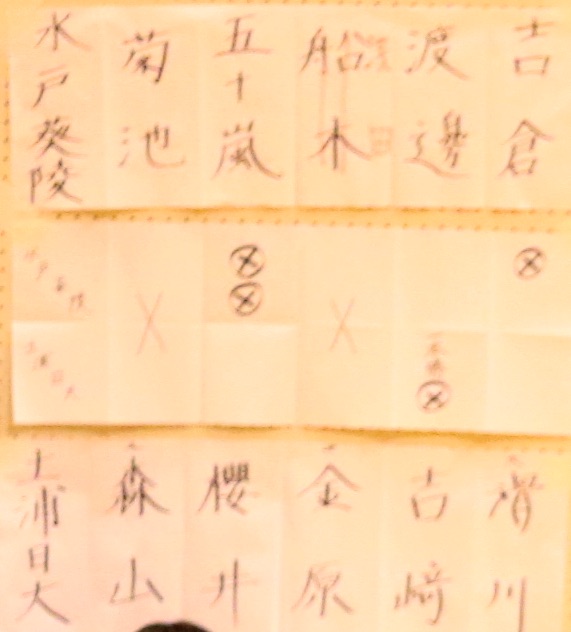 水戸葵陵
菊池
五十嵐
船木
渡邊
吉倉
✕
⊗
⊗
✕
⊗
⊗
土浦日大
森山
櫻井
金原
吉﨑
滑川